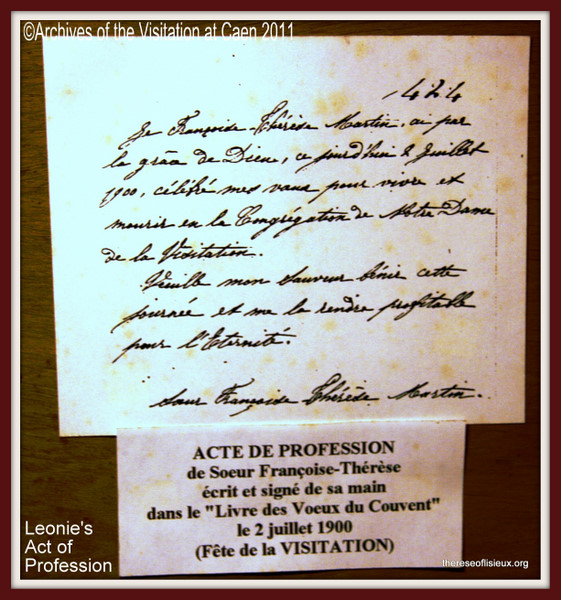 ©Archives of the Visitation at Caen 2011
424
Je Françoise-Thérèse Martin, ai par
la grâce de Dieu, ce jourd'hui 2 Juillet
1900, célébré mes vœux pour vivre et
mourir en la Congrégation de Notre Dame
de la Visitation.
Veuille mon Sauveur bénir cette
journée et me la rendre profitable
pour l'Eternité.
Sœur Françoise Thérèse Martin.
ACTE DE PROFESSION
de Soeur Françoise-Thérèse
écrit et signé de sa main
dans le "Livre des Voeux du Couvent"
le 2 juillet 1900
(Fête de la VISITATION)
Leonie's
Act of
Profession
thereseoflisieux.org